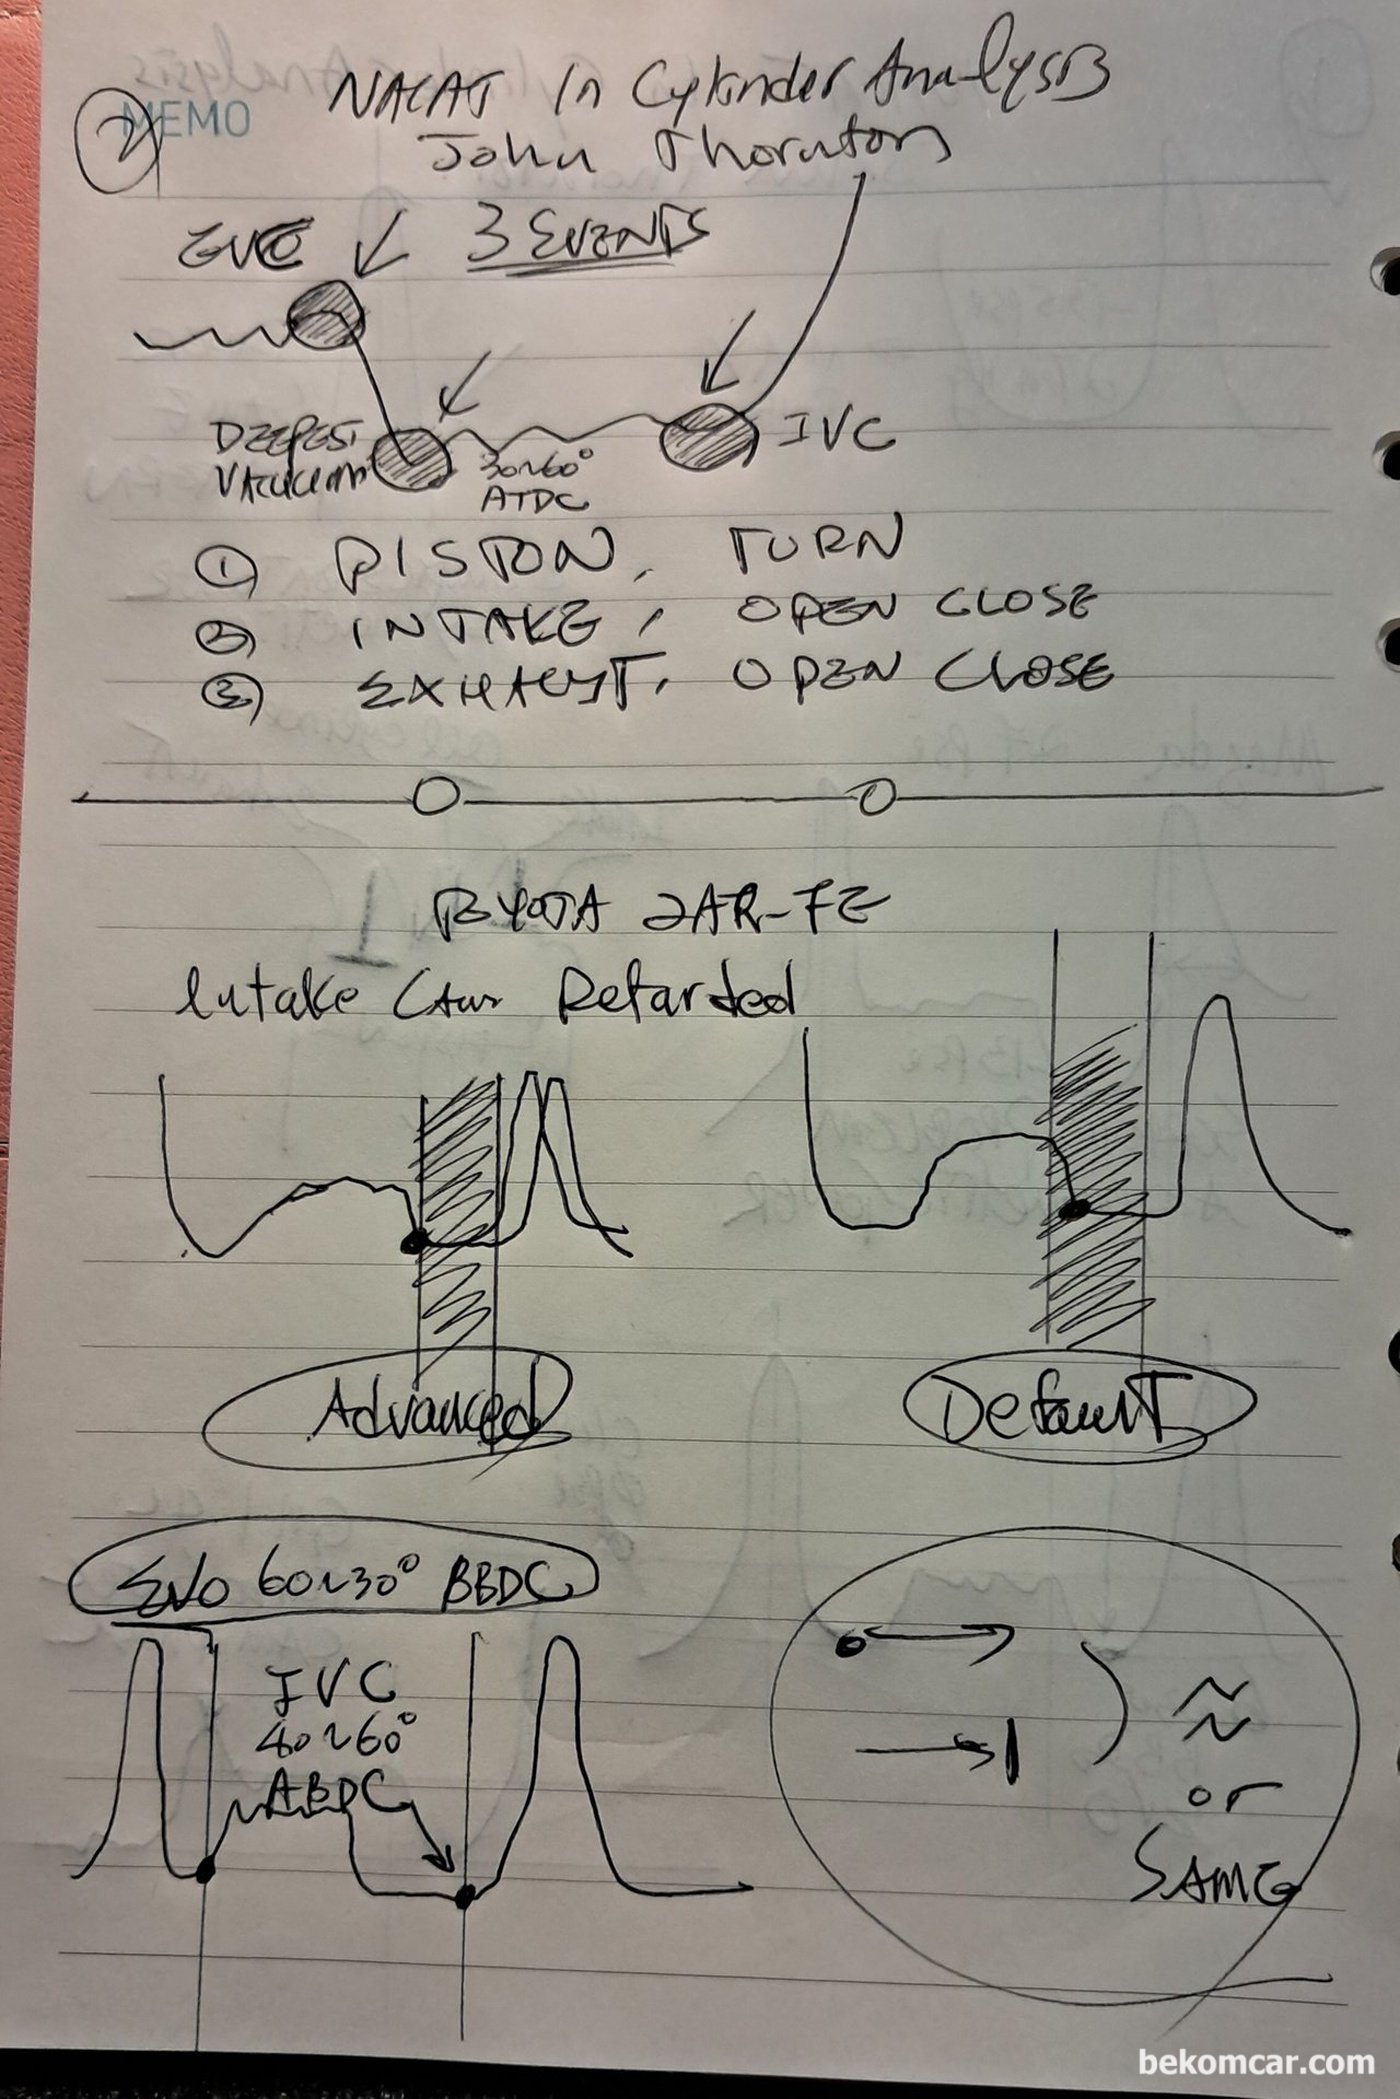 2
MEMO
NACAT In Cylinder Analysis
John Thornton
EVC
3 EVENTS
DEEPEST
VACUUM
30~60°
ATDC
IVC
① PISTON, TURN
② INTAKE, OPEN CLOSE
③ EXHAUST, OPEN CLOSE
TOYOTA 2AR-FE
Intake Cam Retarded
Advanced
Default
EVO 60~30° BBDC
IVC
40~60°
ABDC
≈
or
SAME
bekomcar.com